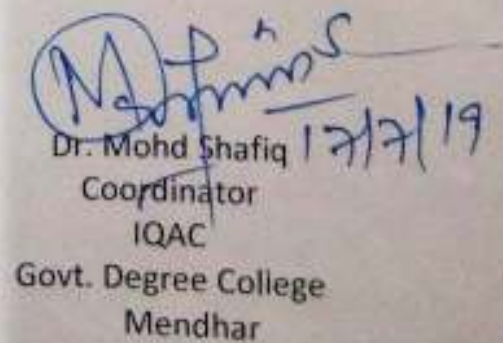 Dr. Mohd Shafiq 17/7/19
Coordinator
IQAC
Govt. Degree College
Mendhar